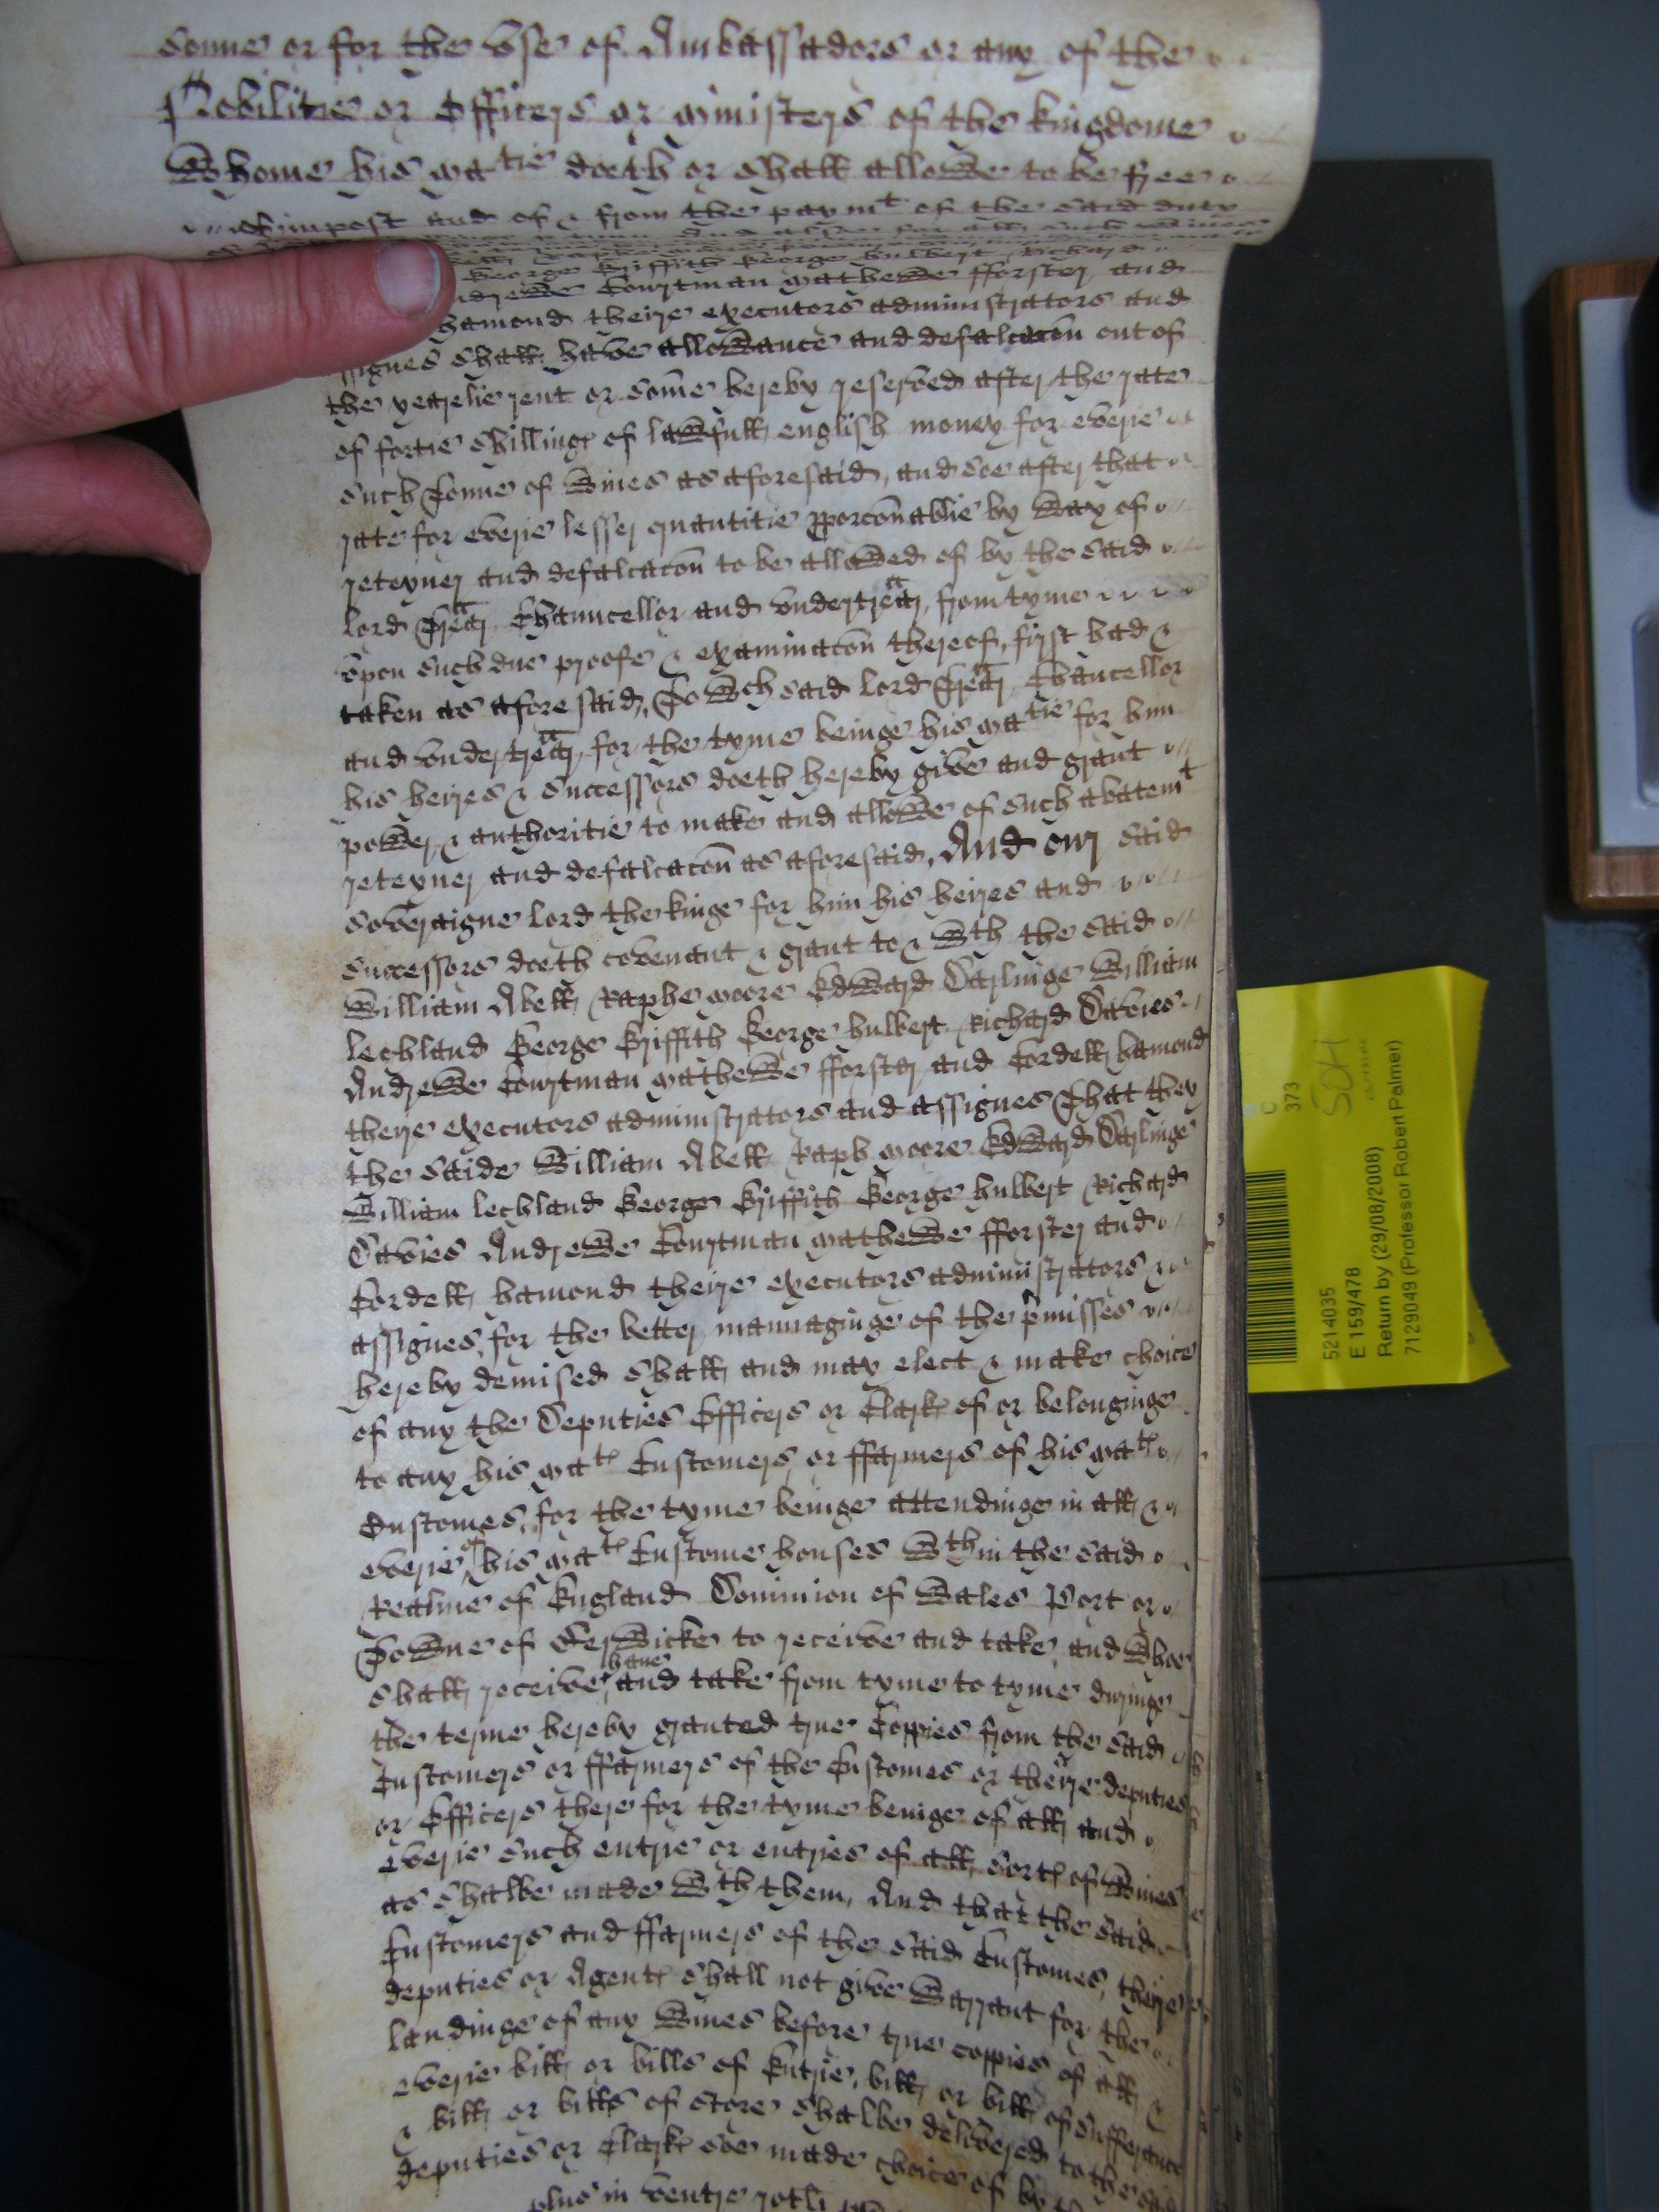 sonne or for the vse of Ambassadors or any of the
Nobilitie or Officers or ministers of the kingdome
Whome his matie doeth or shall allowe to be free
impost and of & from the paymt of the said duty
George Griffith George hulbert Richard
ndrewe Courtman mathewe fforster and
hamond theire executors administrators and
ssignes shall have allowance and defalcacon out of
the yearelie rent or some hereby reserved after the rate
of fortie shillings of lawfull english money for everie
such Tonne of Wines as aforesaid, and soe after that
rate for everie lesser quantitie pporconablie by way of
reteyner and defalcacon to be allowed of by the said
lord Trear Chauncellor and vndertrear, from tyme
vpon such due proofe & examinacon thereof, first had &
taken as aforesaid, To wch said lord Trear, Chancellor
and vndertrear, for the tyme beinge his matie for him
his heires & successors doeth hereby give and grant
power & authoritie to make and allowe of such abatemt
reteyner and defalcacon as aforesaid, And our said
soveraigne lord the kinge for him his heires and
successors doeth covenant & grant to & wth the said
William Abell Raphe moore Edward Darlinge William
lechland George Griffith George hulbert Richard Davies
Andrewe Courtman mathewe fforster and Cordell hamond
theire executors administrators and assignes That they
the saide William Abell Raph moore Edward Darlinge
William lechland George Griffith George hulbert Richard
Davies Andrewe Courtman mathewe fforster and
Cordell hamond theire executors administrators &
assignes, for the better mannaginge of the pmisses
hereby demised shall and may elect & make choice
of any the Deputies Officers or Clarks of or belonginge
to any his mats Customers or ffarmers of his mats
Customes, for the tyme beinge attendinge in all &
everie of his mats Custome houses wthin the said
Realme of England Dominion of Wales Port or
Towne of Berwicke to receive and take, and whoe
shall receive have and take from tyme to tyme duringe
the terme hereby granted true Coppies from the said
Customers or ffarmers of the Customes or theire deputies
or Officers there for the tyme beinge of all and
everie such entrie or entries of all sorts of Wines
as shalbe made wth them, And that the said
Customers and ffarmers of the said Customes, theire
deputies or Agents shall not give Warrant for the
landinge of any Wines before true coppies of all
everie bill or bills of Entrie, bill or bills of sufferance
& bill or bills of store shalbe delivered to the said
deputies or Clarks soe made choice of by
plus in ventre rotli
C
373
SCH
5214035
E 159/478
Return by (29/08/2008)
7129049 (Professor Robert Palmer)